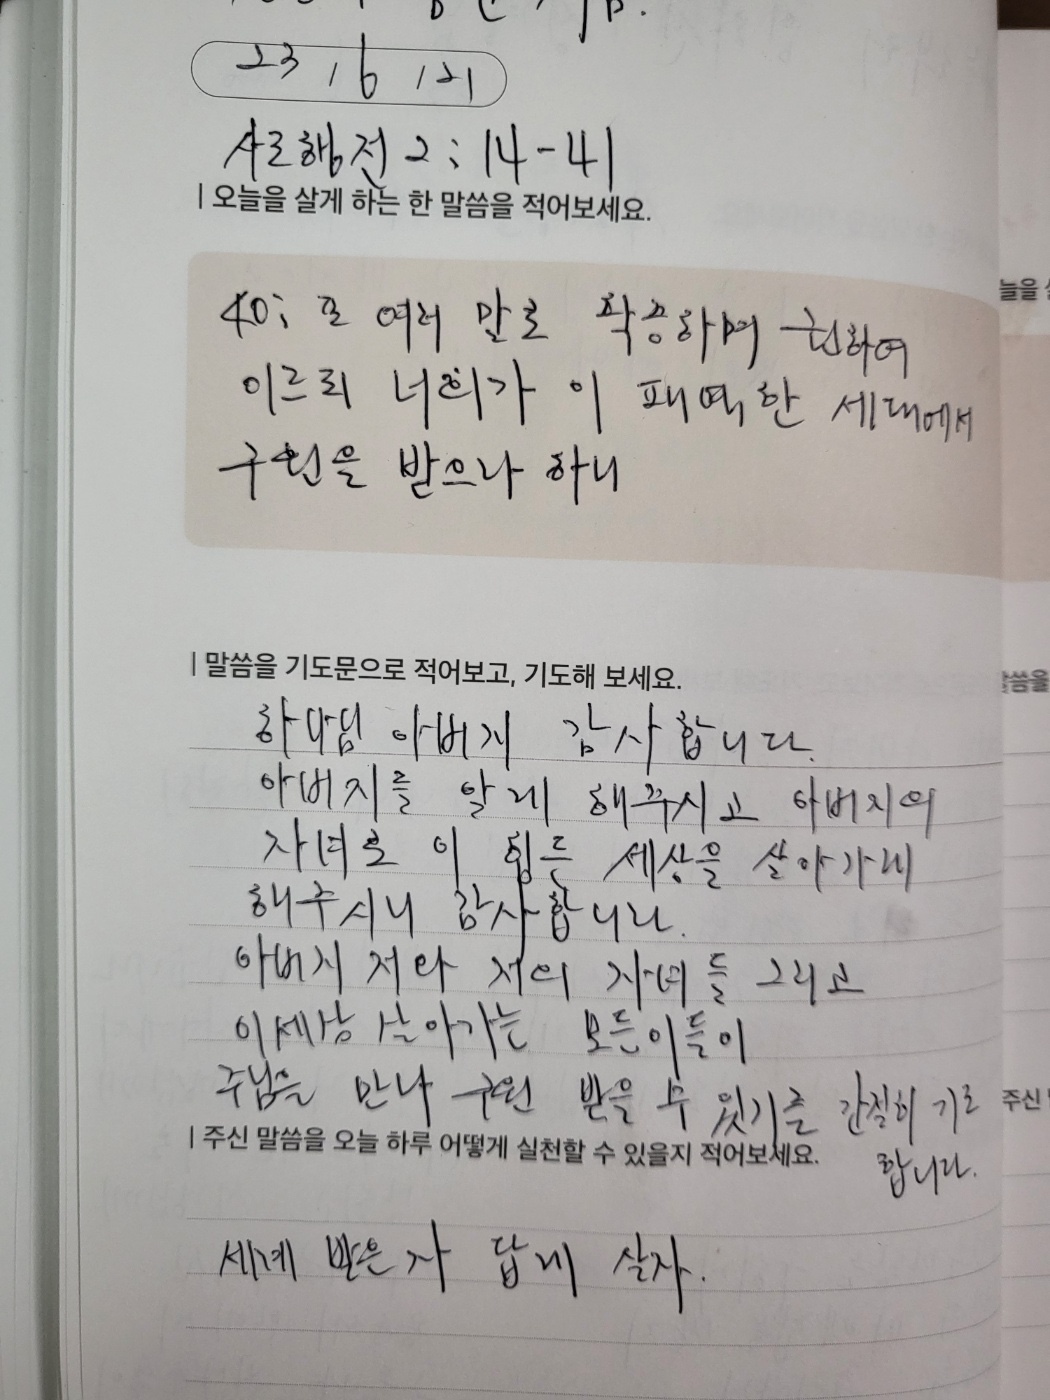 23 / 6 / 21
사도행전 2:14-41
| 오늘을 살게 하는 한 말씀을 적어보세요.
늘을
40; 또 여러 말로 확증하며 권하여
이르되 너희가 이 패역한 세대에서
구원을 받으라 하니
| 말씀을 기도문으로 적어보고, 기도해 보세요.
말씀을
하나님 아버지 감사합니다.
아버지를 알게 해주시고 아버지의
자녀로 이 힘든 세상을 살아가게
해주시니 감사합니다.
아버지 저와 저의 자녀들 그리고
이세상 살아가는 모든이들이
주님을 만나 구원 받을 수 있기를 간절히 기도
합니다.
주신
| 주신 말씀을 오늘 하루 어떻게 실천할 수 있을지 적어보세요.
세례 받은 자 답게 살자.